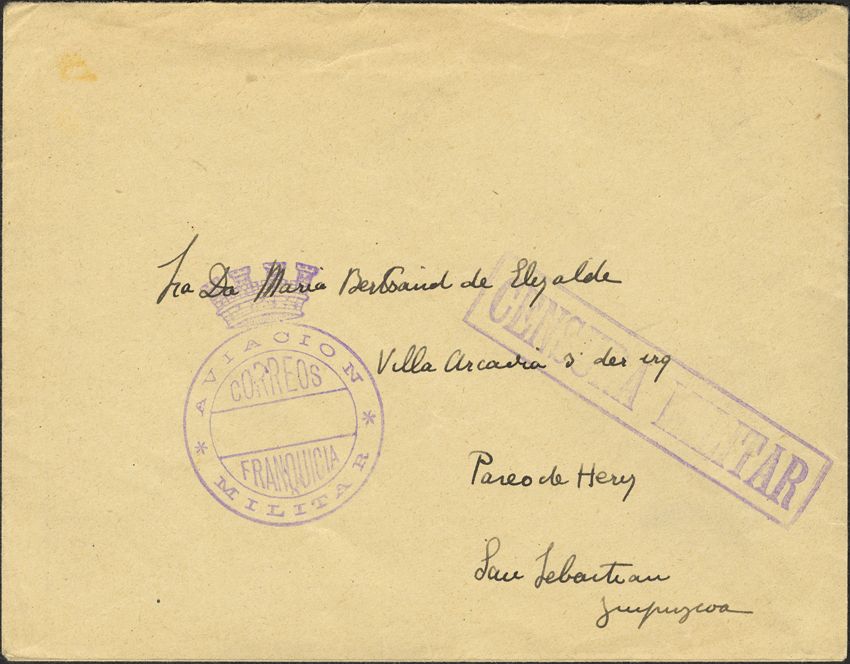 Sra Da Maria Bertrand de Elizalde
Villa Arcadia 3º der izq
Paseo de Heriz
San Sebastian
Guipuzcoa
AVIACION
CORREOS
FRANQUICIA
* MILITAR *
CENSURA MILITAR